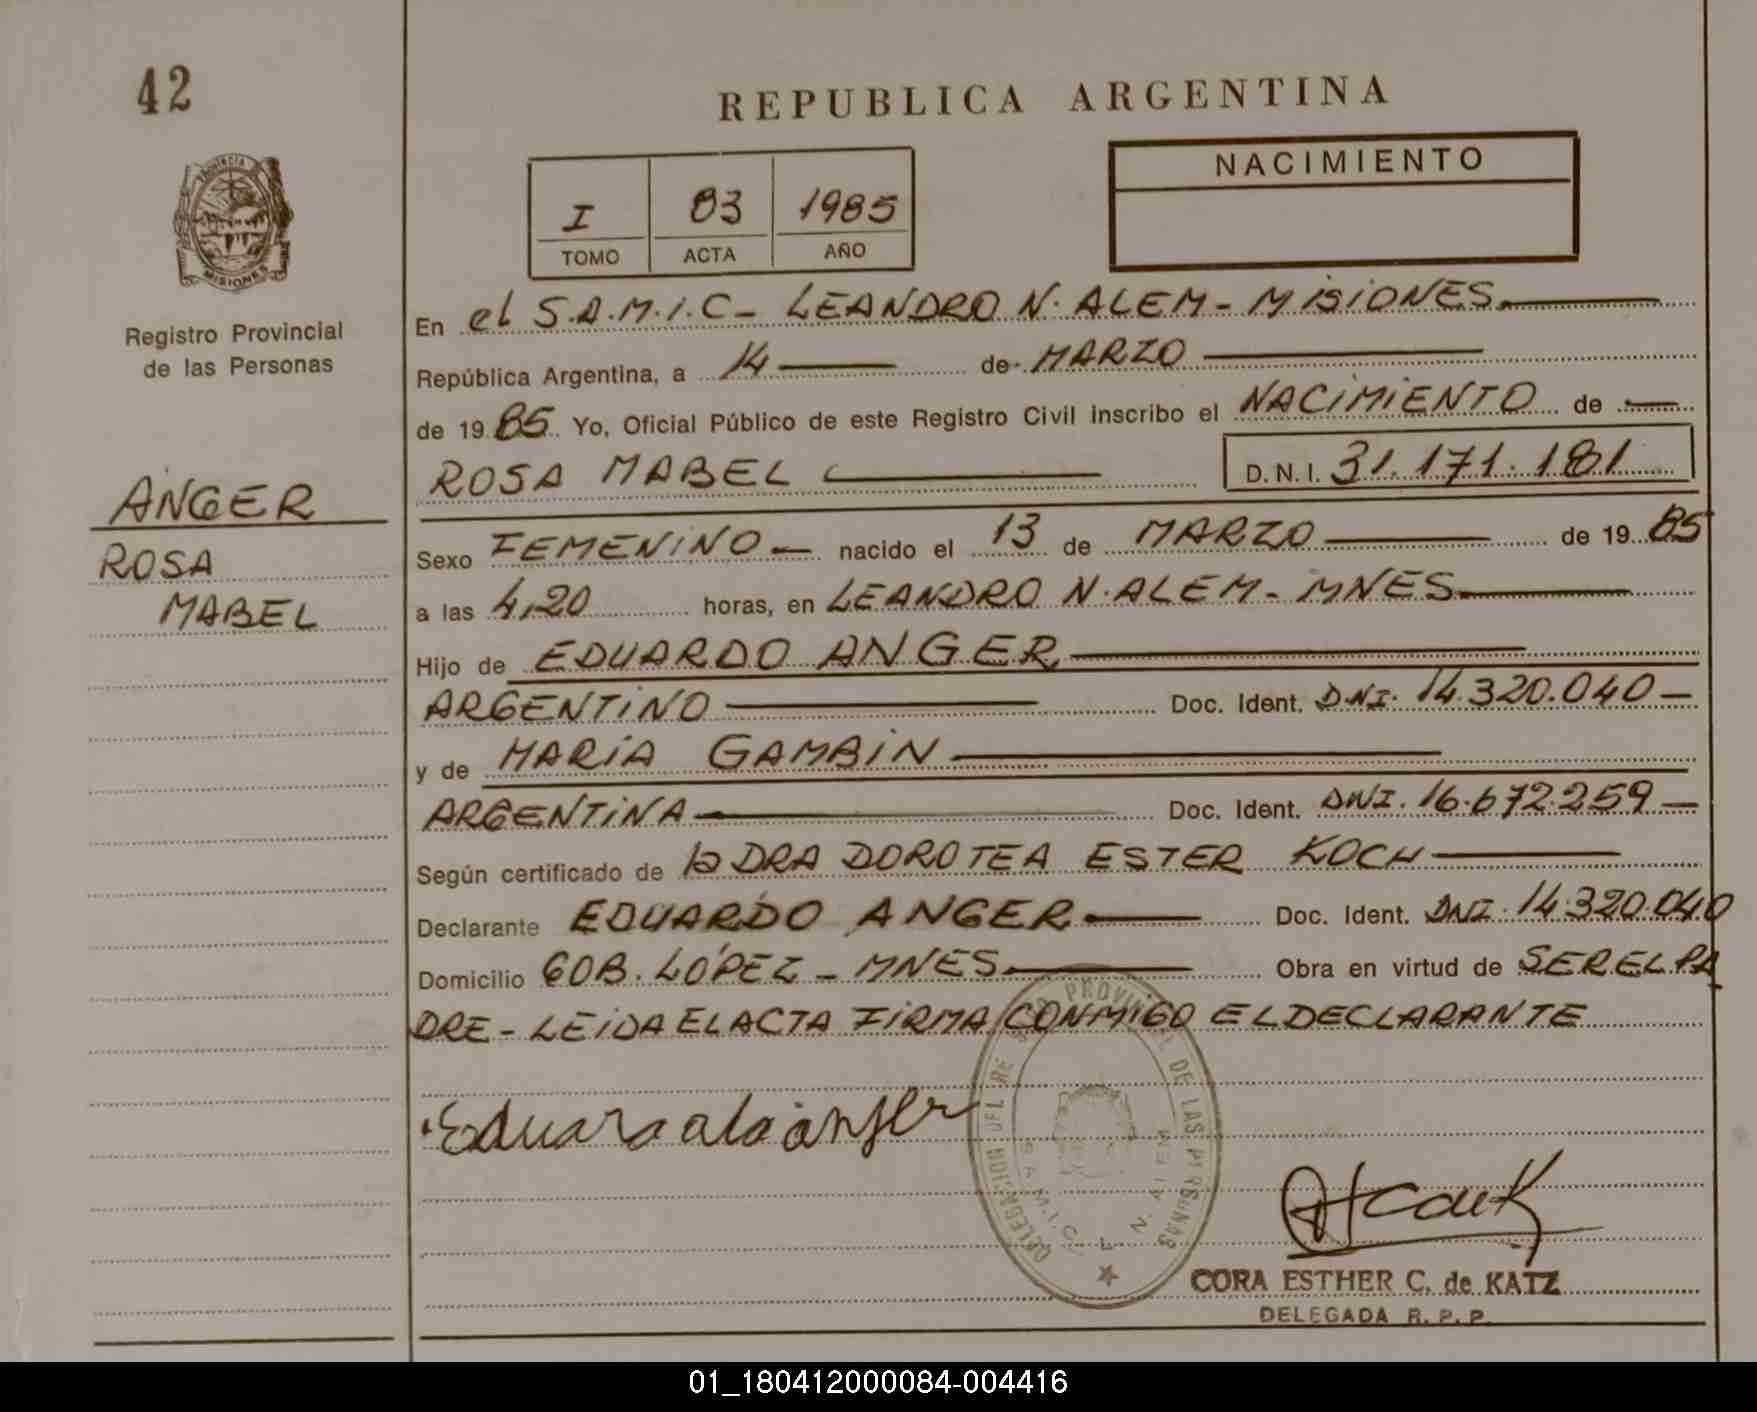 42
REPUBLICA ARGENTINA
NACIMIENTO
I 83 1985
TOMO ACTA AÑO
PROVINCIA
MISIONES
Registro Provincial
de las Personas
ANGER
ROSA
MABEL
En el S.A.M.I.C - LEANDRO N. ALEM - MISIONES
República Argentina, a 14 de MARZO
de 19 85 Yo, Oficial Público de este Registro Civil inscribo el NACIMIENTO de
ROSA MABEL D. N. I. 31.171.181
Sexo FEMENINO nacido el 13 de MARZO de 19 85
a las 4,20 horas, en LEANDRO N. ALEM - MNES
Hijo de EDUARDO ANGER
ARGENTINO Doc. Ident. DNI. 14.320.040
y de MARÍA GAMBIN
ARGENTINA Doc. Ident. DNI. 16.672.259
Según certificado de la DRA DOROTEA ESTER KOCH
Declarante EDUARDO ANGER Doc. Ident. DNI. 14.320.040
Domicilio GOB. LÓPEZ - MNES Obra en virtud de SER EL PA
DRE - LEIDA EL ACTA FIRMA CONMIGO EL DECLARANTE
DE LAS PERSONAS
S.A.M.I.C. L. N. ALEM
CORA ESTHER C. de KATZ
DELEGADA R. P. P.
01_180412000084-004416